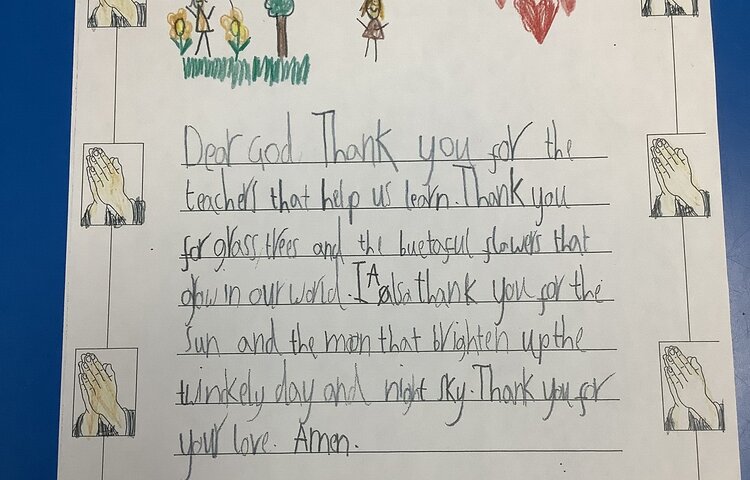 Dear God. Thank you for the
teachers that help us learn. Thank you
for grass, trees and the buetaful flowers that
grow in our world. I Aalso thank you for the
sun and the moon that brighten up the
twinkely day and night sky. Thank you for
your love. Amen.